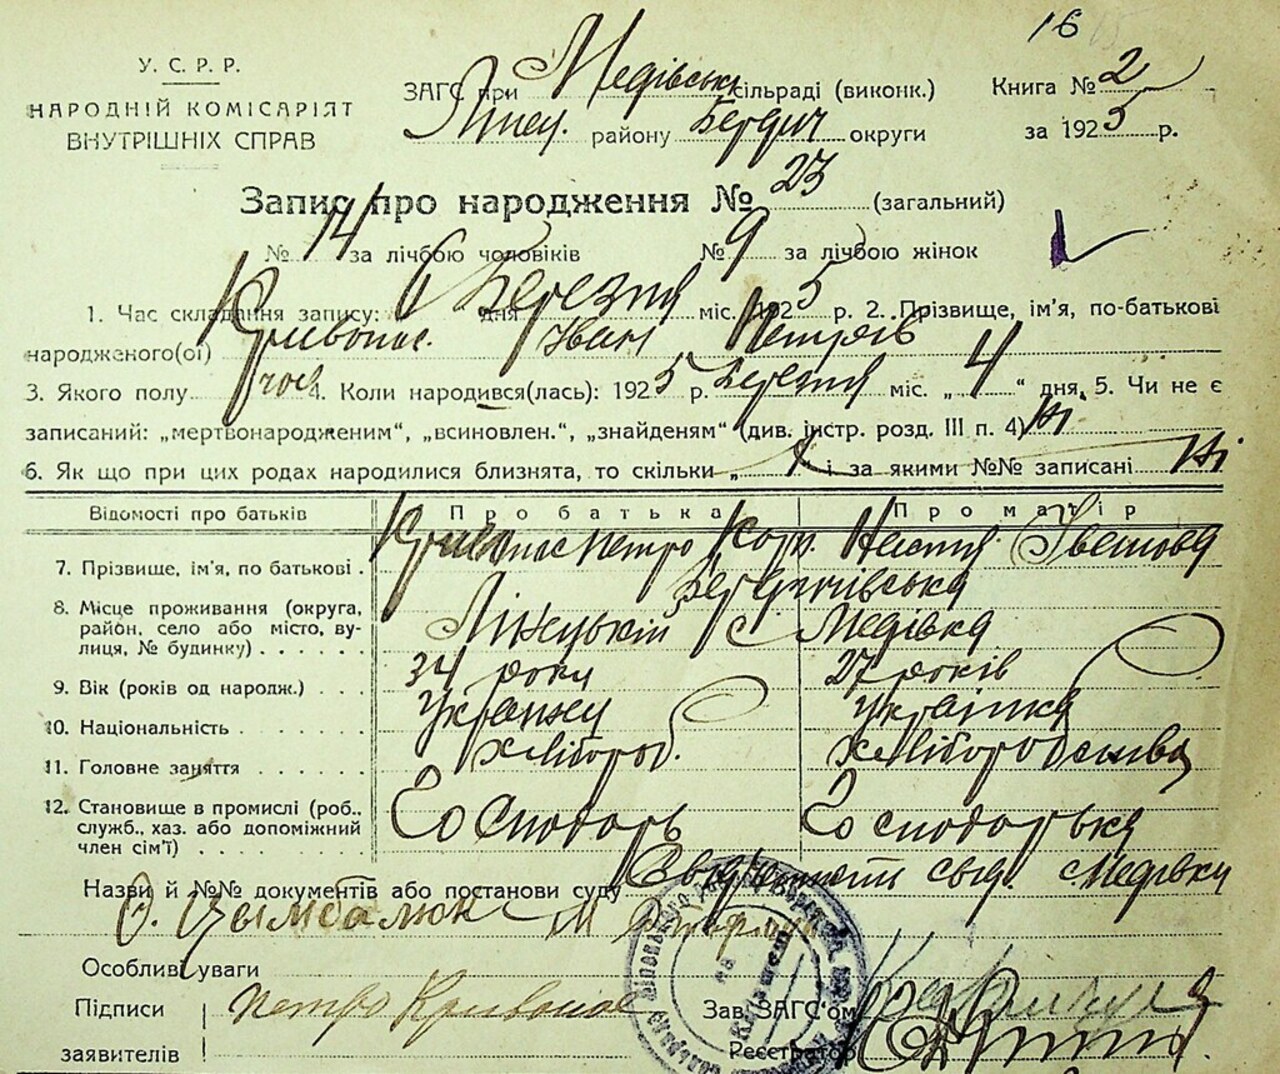 16
У. С. Р. Р.
НАРОДНІЙ КОМІСАРІЯТ
ВНУТРІШНІХ СПРАВ
ЗАГС при Медівськ сільраді (виконк.)
району Бердич округи
Книга № 2
за 1925 р.
Запис про народження № 23 (загальний)
№ 14 за лічбою чоловіків № 9 за лічбою жінок
1. Час складання запису: 6 дня Березня міс. 1925 р. 2. Прізвище, ім'я, по-батькові
народженого(ої) Кривонос. Іван Петрів
3. Якого полу чол 4. Коли народився(лась): 1925 р. Березня міс. „ 4 “ дня, 5. Чи не є
записаний: „мертвонародженим“, „всиновлен.“, „знайденям“ (див. інстр. розд. III п. 4) Ні
6. Як що при цих родах народилися близнята, то скільки „ і за якими №№ записані Ні
Відомості про батьків Про батька Про матір
7. Прізвище, ім'я, по батькові . Кривонос Петро Настя Іванова
8. Місце проживання (округа, район, село або місто, вулиця, № будинку) . . . . . . Бердичівська
с Медівка
9. Вік (років од народж.) . . . 34 роки 27 років
10. Національність . . . . . . українка
11. Головне заняття . . . . . . хлібороб. хліборобства
12. Становище в промислі (роб., служб., хаз. або допоміжний член сім'ї) . . . . . . Господарь Господарька
Назви й №№ документів або постанови суду свід. с. Медівки
О. Цымбалюк М
Особливі уваги
Підписи
заявителів
Петро Кривонос
Зав. ЗАГС'ом
Реєстратор